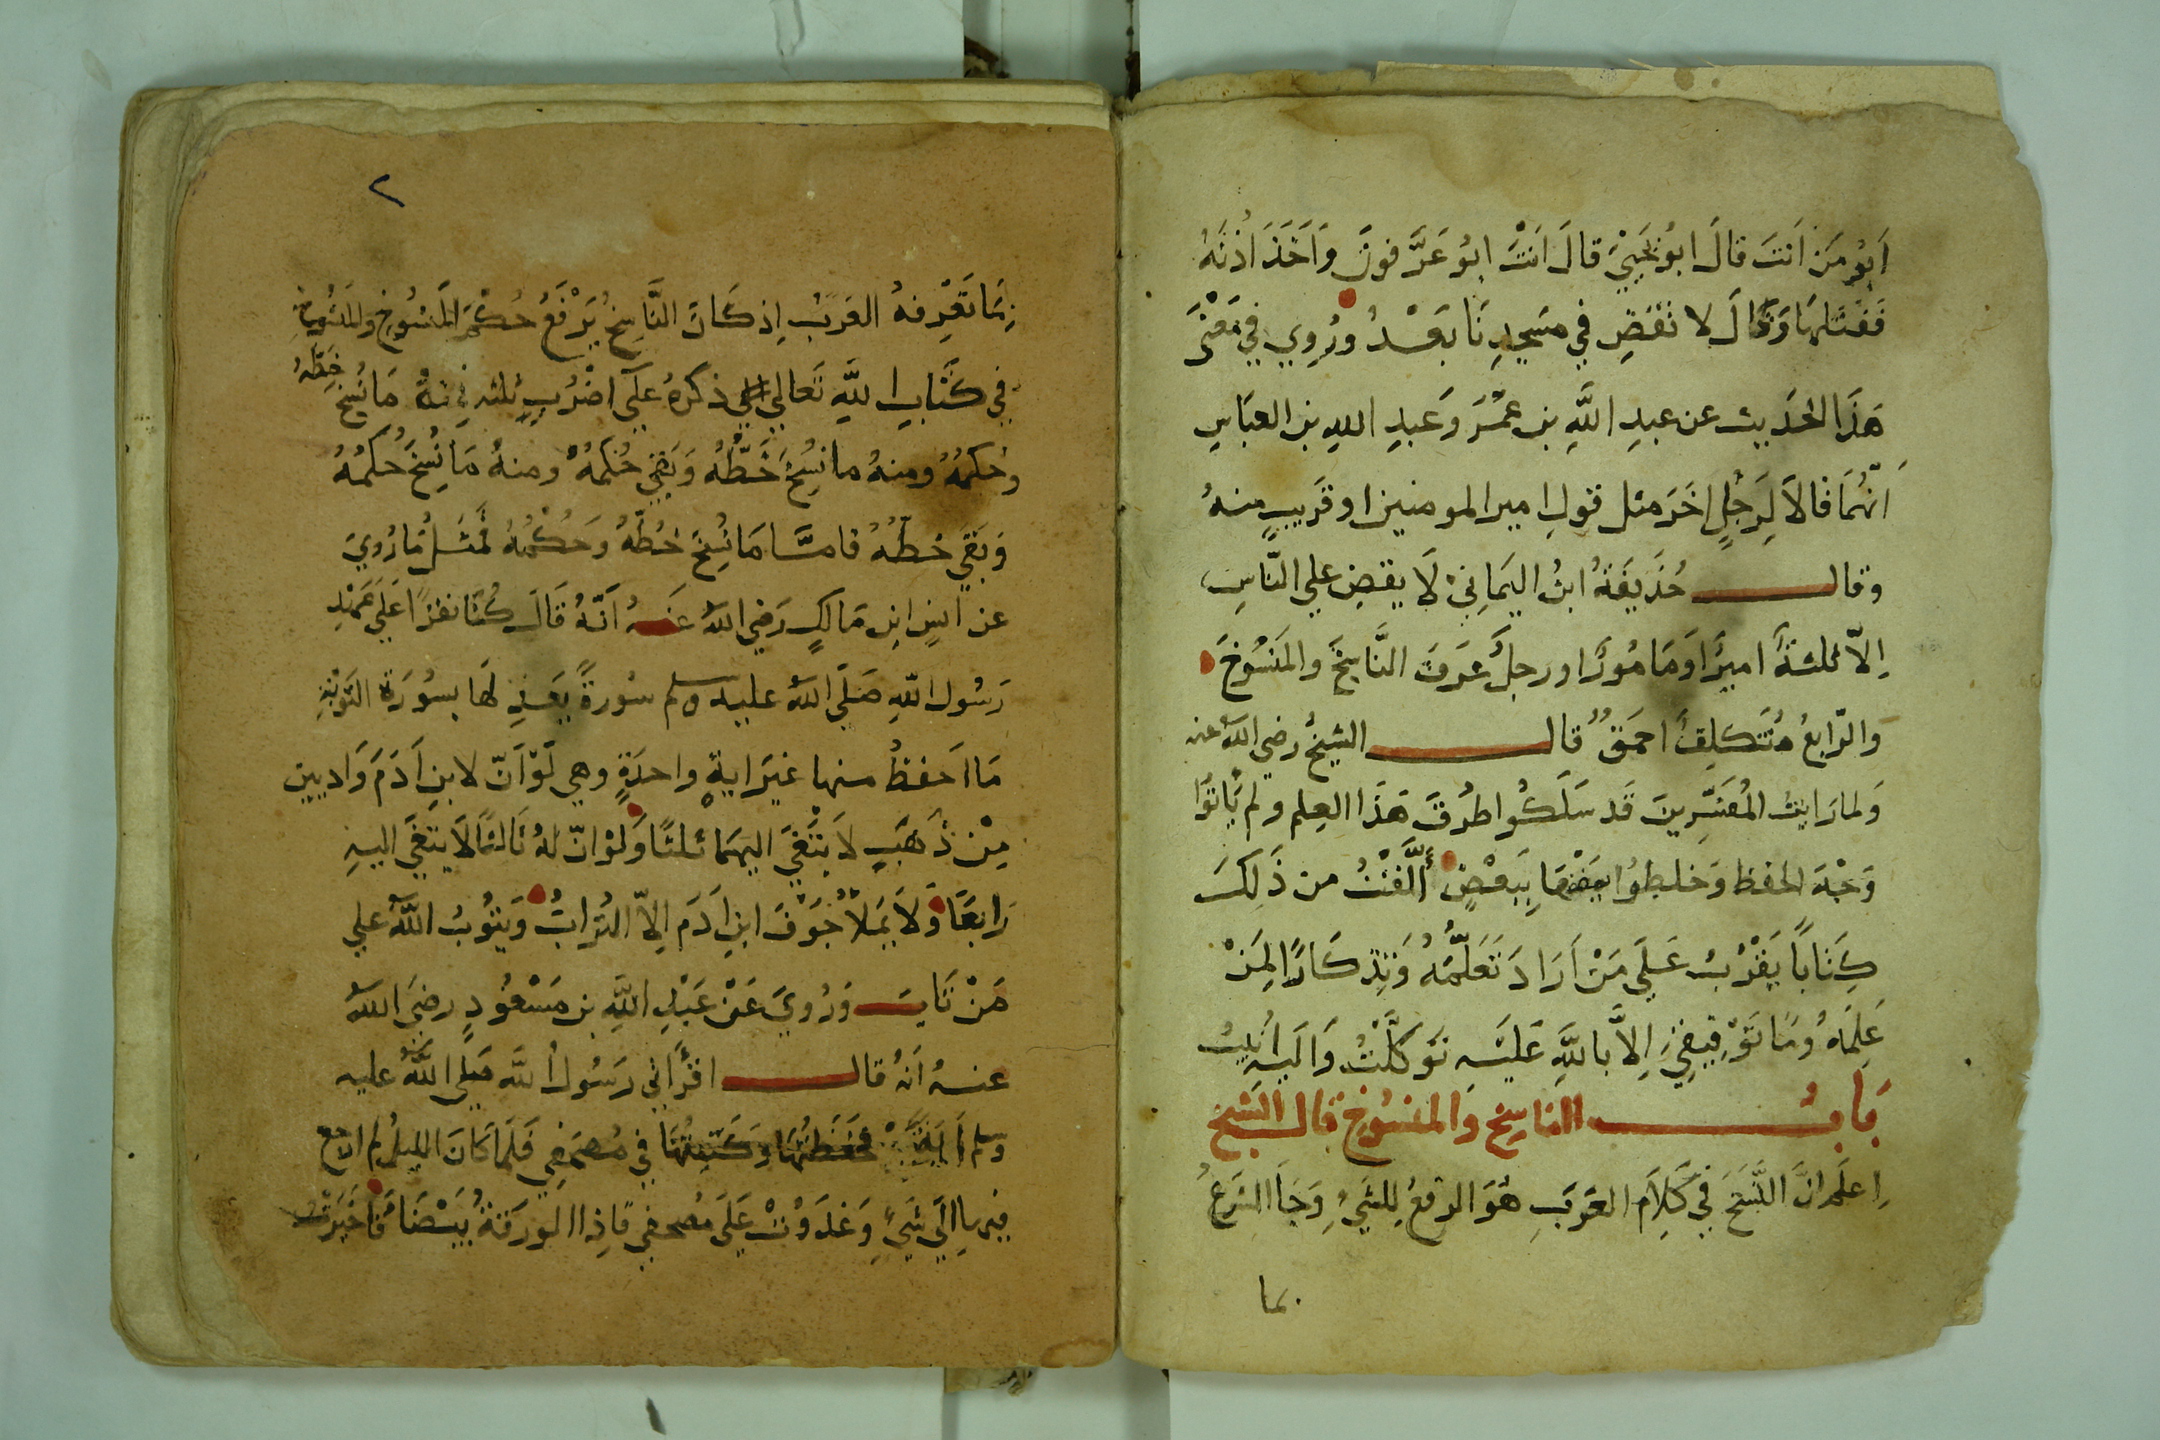 اَبُو مَن اَنتَ قالَ ابُو يَحيَى قالَ اَنتَ ابُو عَرّفونَ وَاَخَذَ اُذنَهُ
فَفتَلهَا وَقالَ لا تَقضِ في مَسجِدِنَا بَعْدُ ورُوِي في مَعْنَى
هَذَا الحَدَيث عن عبدِ اللَّهِ بن عمَرَ وَعَبدِ اللهِ بن العبَاسِ
اَنّهُمَا قالاَ لِرَجُلٍ اخَرَ مثل قولِ امير المومنين او قَريبٍ منهُ
وقال حُذَيفَةُ ابنُ اليمَانِي لَا يقضِ علي النّاسِ
اِلاّ ثلثةٌ اميرٌ اَو مَا مُورٌ او رجلٌ عَرَفَ النَّاسِخَ والمَنسُوخَ
والرّابعُ مُتَكلِفٌ احمَقٌ قال الشيخُ رضي اللهُ عنه
وَلما رَايتُ المُفَسِّرِينَ قَد سَلَكُوا طرُقَ هَذَا العِلم ولم يَاتوُا
وَجْهَ الحفظ وَخلطُوا بعضهَا بِبَعْضٍ أَلَّفْتُ من ذَلِكَ
كِتَاباً يَقْرُبُ عَلَى مَنْ اَرَادَ تَعَلّمُهُ وَتِذكَارًا لِمَنْ
عَلِمَهُ وُمَا تَوْفِيقِي اِلاَّ باللَّهِ عَلَيْهِ تَوَكَّلْتُ وَاليهِ اُنيْبُ
بَابُ الناسِخِ وَالمنسُوخِ قال الشيخ
اِعلَم انَّ النَّسْخَ في كَلاَمِ العَرَبِ هُوَ الرفعُ لِلشَيْءِ وَجَا الشَرعُ
بما
٢
بِمَا تَعْرِفهُ العَرَبُ اِذ كَانَ النَّاسِخُ يَرْفَعُ حُكْمَ المَنسُوخِ والمَنسُوخ
في كتَابِ اللَّهِ تَعَالي ذكرهُ علَى اضْرُبٍ ثلثه فمِنهُ مَا نُسِخَ خَطّهُ
وحُكمُهُ ومنهُ ما نسُخَ خَطّهُ وَبَقِي حُكمُهُ ومنهُ مَا نُسِخَ حُكمُهُ
وَبَقَي خطّهُ فامّا مَا نُسِخَ خطّهُ وَحُكْمُهُ فمثلُ مَا رُويَ
عن انسٍ ابنِ مَالكٍ رَضي اللهُ عَنهُ اَنّهُ قَالَ كُنَّا نقرَأ عَلَى عَهْدِ
رَسُول اللهِ صَلَّى اللهُ عليه وسلم سُورةً يَعدِلهَا بسُورَة التَوْبَةِ
مَا احفظُ منها غيرَ ايةٍ واحدَةٍ وهي لَوْ اَنّ لابنِ اَدَمَ وَاديين
مِنْ ذَهَبٍ لَابْتَغَي اليهمَا ثَلثًا وَلَوْ انّ لهُ ثَالثًا لَابتَغَي اليهِ
رَابعًا وَلاَ يَملاُ جُوَفَ ابنِ اَدَم اِلاّ التُرابُ وَيتُوبُ اللَّهُ علي
مَنْ تَابَ وَرُوِيَ عَنْ عَبْدِ اللَّهِ بن مَسْعُودٍ رضيَ اللهُ
عنهُ اَنهُ قال اقرَأَني رَسُولُ اللَّه صَلى اللَّهُ عليه
وسلم اَيَةً فحَفَظتُهَا وَكَتبتُهَا في مُصحَفِي فَلَمَا كَانَ الليلُ لم ارجع
فيها اِلَى شَيْءٍ وَغدَوْتُ عَلَى مُصحفي فاذا الورَقةُ بَيْضَا فَاخبَرتُ